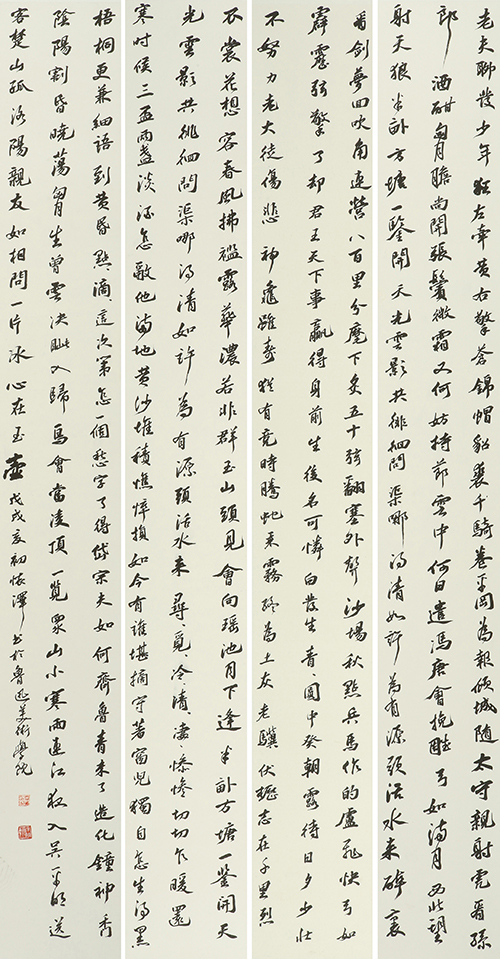 老夫聊發少年狂左牽黃右擎蒼錦帽貂裘千騎卷平岡為報傾城隨太守親射虎看孫
郎酒酣胸膽尚開張鬢微霜又何妨持節雲中何日遣馮唐會挽雕弓如滿月西北望
射天狼半畝方塘一鑒開天光雲影共徘徊問渠哪得清如許為有源頭活水來醉裏
看劍夢回吹角連營八百里分麾下炙五十弦翻塞外聲沙場秋點兵馬作的盧飛快弓如
霹靂弦擎了却君王天下事贏得身前生後名可憐白發生青園中葵朝露待日夕少壯
不努力老大徒傷悲神龜雖壽猶有竟時騰虵乘霧終為土灰老驥伏櫪志在千里烈
衣裳花想容春風拂檻露華濃若非群玉山頭見會向瑶池月下逢半畝方塘一鑒開天
光雲影共徘徊問渠哪得清如許為有源頭活水來尋、覓、冷、清、淒、慘慘切切乍暖還
寒時候三盃兩盞淡酒怎敵他滿地黃沙堆積憔悴損如今有誰堪摘守著窗兒獨自怎生得黑
梧桐更兼細語到黃昏點滴這次第怎一個愁字了得岱宗夫如何齊魯青未了造化鐘神秀
陰陽割昏曉蕩胸生曾雲決眦入歸鳥會當淩頂一覽眾山小寒雨連江夜入吳平明送
客楚山孤洛陽親友如相問一片冰心在玉壺戊戌亥初懷澤書於魯迅美術學院